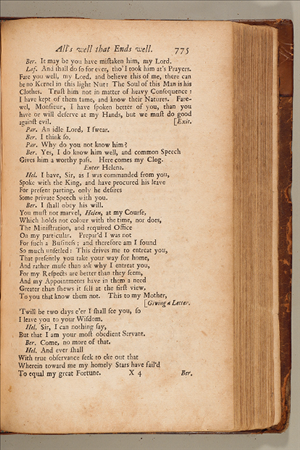 All's well that Ends well. 775
Ber. It may be you have mistaken him, my Lord.
Laf. And shall do so for ever, tho' I took him at's Prayers.
Fare you well, my Lord, and believe this of me, there can
be no Kernel in this light Nut: The Soul of this Man is his
Clothes. Trust him not in matter of heavy Consequence:
I have kept of them tame, and know their Natures. Fare-
wel, Monsieur, I have spoken better of you, than you
have or will deserve at my Hands, but we must do good
against evil. [Exit.
Par. An idle Lord, I swear.
Ber. I think so.
Par. Why do you not know him?
Ber. Yes, I do know him well, and common Speech
Gives him a worthy pass. Here comes my Clog.
Enter Helena.
Hel. I have, Sir, as I was commanded from you,
Spoke with the King, and have procur'd his leave
For present parting, only he desires
Some private Speech with you.
Ber. I shall obey his will.
You must not marvel, Helen, at my Course,
Which holds not colour with the time, nor does,
The Ministration, and required Office
On my particular. Prepar'd I was not
For such a Business; and therefore am I found
So much unsetled: This drives me to entreat you,
That presently you take your way for home,
And rather muse than ask why I entreat you,
For my Respects are better than they seem,
And my Appointments have in them a need
Greater than shews it self at the first view,
To you that know them not. This to my Mother,
[Giving a Letter.
'Twill be two days e'er I shall see you, so
I leave you to your Wisdom.
Hel. Sir, I can nothing say,
But that I am your most obedient Servant.
Ber. Come, no more of that.
Hel. And ever shall
With true observance seek to eke out that
Wherein toward me my homely Stars have fail'd
To equal my great Fortune. X 4 Ber,